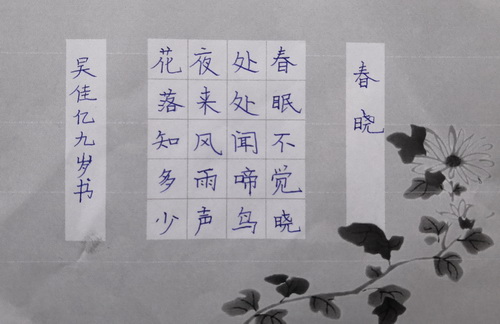 春晓
春眠不觉晓
处处闻啼鸟
夜来风雨声
花落知多少
吴佳亿九岁书